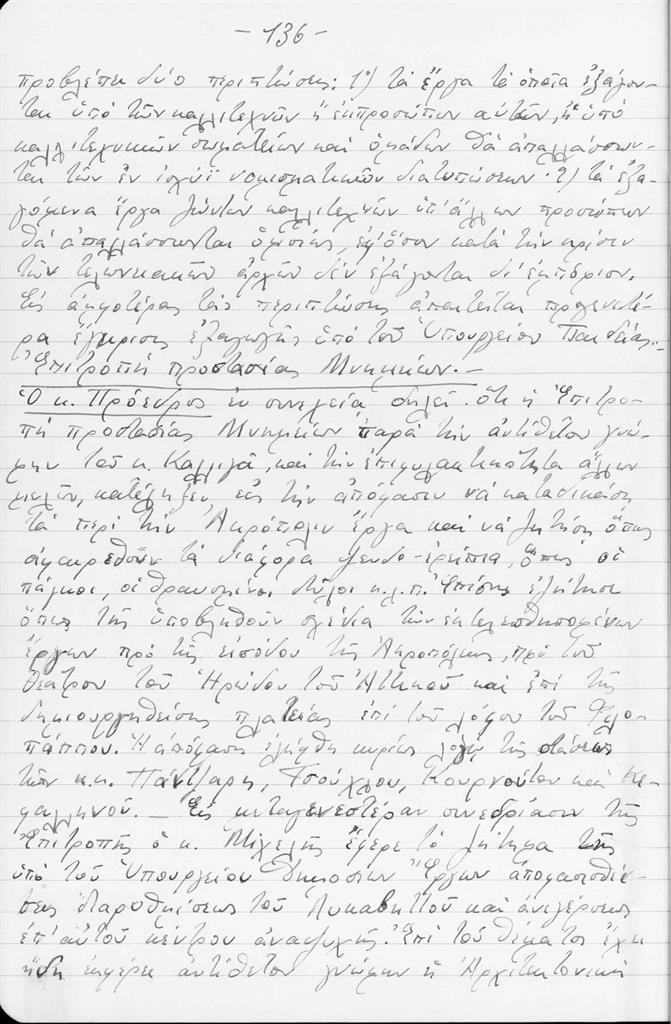 - 136 -
προβλέπει δύο περιπτώσεις: 1) τά ἔργα τά ὁποῖα ἐξάγον-
ται ὑπό τῶν καλλιτεχνῶν ἤ ἐκπροσώπων αὐτῶν, ἤ ὑπό
καλλιτεχνικῶν σωματείων καί ὁμάδων θά ἀπαλλάσσων-
ται τῶν ἐν ἰσχύϊ νομισματικῶν διατυπώσεων. 2) τά ἐξα-
γόμενα ἔργα ζώντων καλλιτεχνῶν ὑπ' ἄλλων προσώπων
θά ἀπαλλάσσωνται ὁμοίως, ἐφ' ὅσον κατά τήν κρίσιν
τῶν τελωνειακῶν ἀρχῶν δέν ἐξάγονται δι' ἐμπόριον.
Εἰς ἀμφοτέρας τάς περιπτώσεις ἀπαιτεῖται προγενεστέ-
ρα ἔγκρισις ἐξαγωγῆς ὑπό τοῦ Ὑπουργείου Παιδείας.
Ἐπιτροπή προστασίας Μνημείων.-
Ὁ κ. Πρόεδρος ἐν συνεχείᾳ δηλοῖ ὅτι ἡ Ἐπιτρο-
πή προστασίας Μνημείων παρά τήν ἀντίθετον γνώ-
μην τοῦ κ. Καλλιγᾶ, καί τήν ἐπιφυλακτικότητα ἄλλων
μελῶν, κατέληξεν εἰς τήν ἀπόφασιν νά καταδικάσῃ
τά περί τήν Ἀκρόπολιν ἔργα καί νά ζητήσῃ ὅπως
ἀφαιρεθοῦν τά διάφορα ψευδο-ἐρείπια, ὅπως οἱ
πάγκοι, οἱ θραυσμένοι στῦλοι κ.λ.π. Ἐπίσης ἐζήτησε
ὅπως τῆς ὑποβληθοῦν σχέδια τῶν ἐκτελεσθησομένων
ἔργων πρό τῆς εἰσόδου τῆς Ἀκροπόλεως, πρό τοῦ
θεάτρου τοῦ Ἡρώδου τοῦ Ἀττικοῦ καί ἐπί τῆς
δημιουργηθείσης πλατείας ἐπί τοῦ λόφου τοῦ Φιλο-
πάππου. Ἡ ἀπόφασις ἐλήφθη κυρίως λόγῳ τῆς στάσεως
τῶν κ.κ. Πάντζαρη, Τσούχλου, Κουρνούτου καί Κε-
φαλληνοῦ. - Εἰς μεταγενεστέραν συνεδρίασιν τῆς
Ἐπιτροπῆς ὁ κ. Μιχελῆς ἔφερε τό ζήτημα τῆς
ὑπό τοῦ Ὑπουργείου Δημοσίων Ἔργων ἀποφασισθεί-
σης διαρυθμίσεως τοῦ Λυκαβηττοῦ καί ἀνεγέρσεως
ἐπ' αὐτοῦ κέντρου ἀναψυχῆς. Ἐπί τοῦ θέματος ἔχει
ἤδη ἐκφέρει ἀντίθετον γνώμην ἡ Ἀρχιτεκτονική